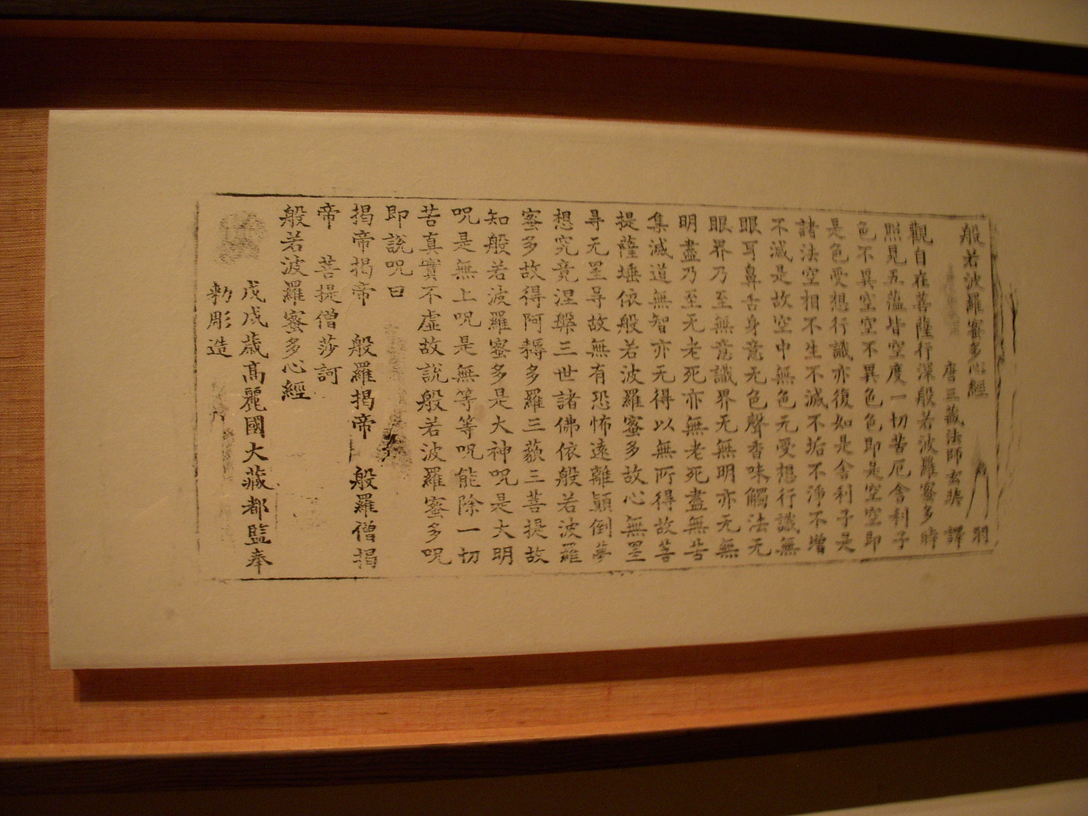 般若波羅蜜多心經 羽
唐三藏法師玄奘 譯
觀自在菩薩行深般若波羅蜜多時
照見五蘊皆空度一切苦厄舍利子
色不異空空不異色色即是空空即
是色受想行識亦復如是舍利子是
諸法空相不生不滅不垢不淨不增
不減是故空中無色无受想行識無
眼耳鼻舌身意无色聲香味觸法无
眼界乃至無意識界无無明亦无無
明盡乃至无老死亦無老死盡無苦
集滅道無智亦无得以無所得故菩
提薩埵依般若波羅蜜多故心無罣
㝵无罣㝵故無有恐怖遠離顚倒夢
想究竟涅槃三世諸佛依般若波羅
蜜多故得阿耨多羅三藐三菩提故
知般若波羅蜜多是大神呪是大明
呪是無上呪是無等等呪能除一切
苦真實不虛故說般若波羅蜜多呪
即說呪曰
揭帝揭帝 般羅揭帝 般羅僧揭
帝 菩提僧莎訶
般若波羅蜜多心經
戊戌歲高麗國大藏都監奉
勅彫造